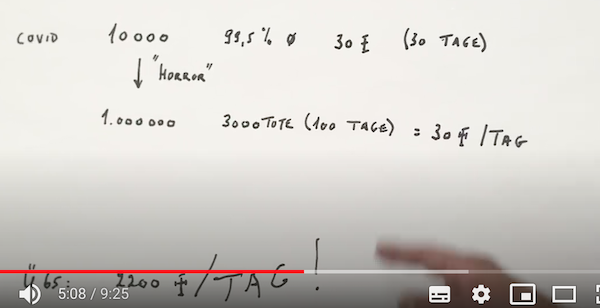 COVID 10000 99,5% Ø 30 (30 TAGE)
↓ "HORROR"
1.000000 3000 TOTE (100 TAGE) = 30 /TAG
Ü65: 2200 /TAG!
5:08 / 9:25